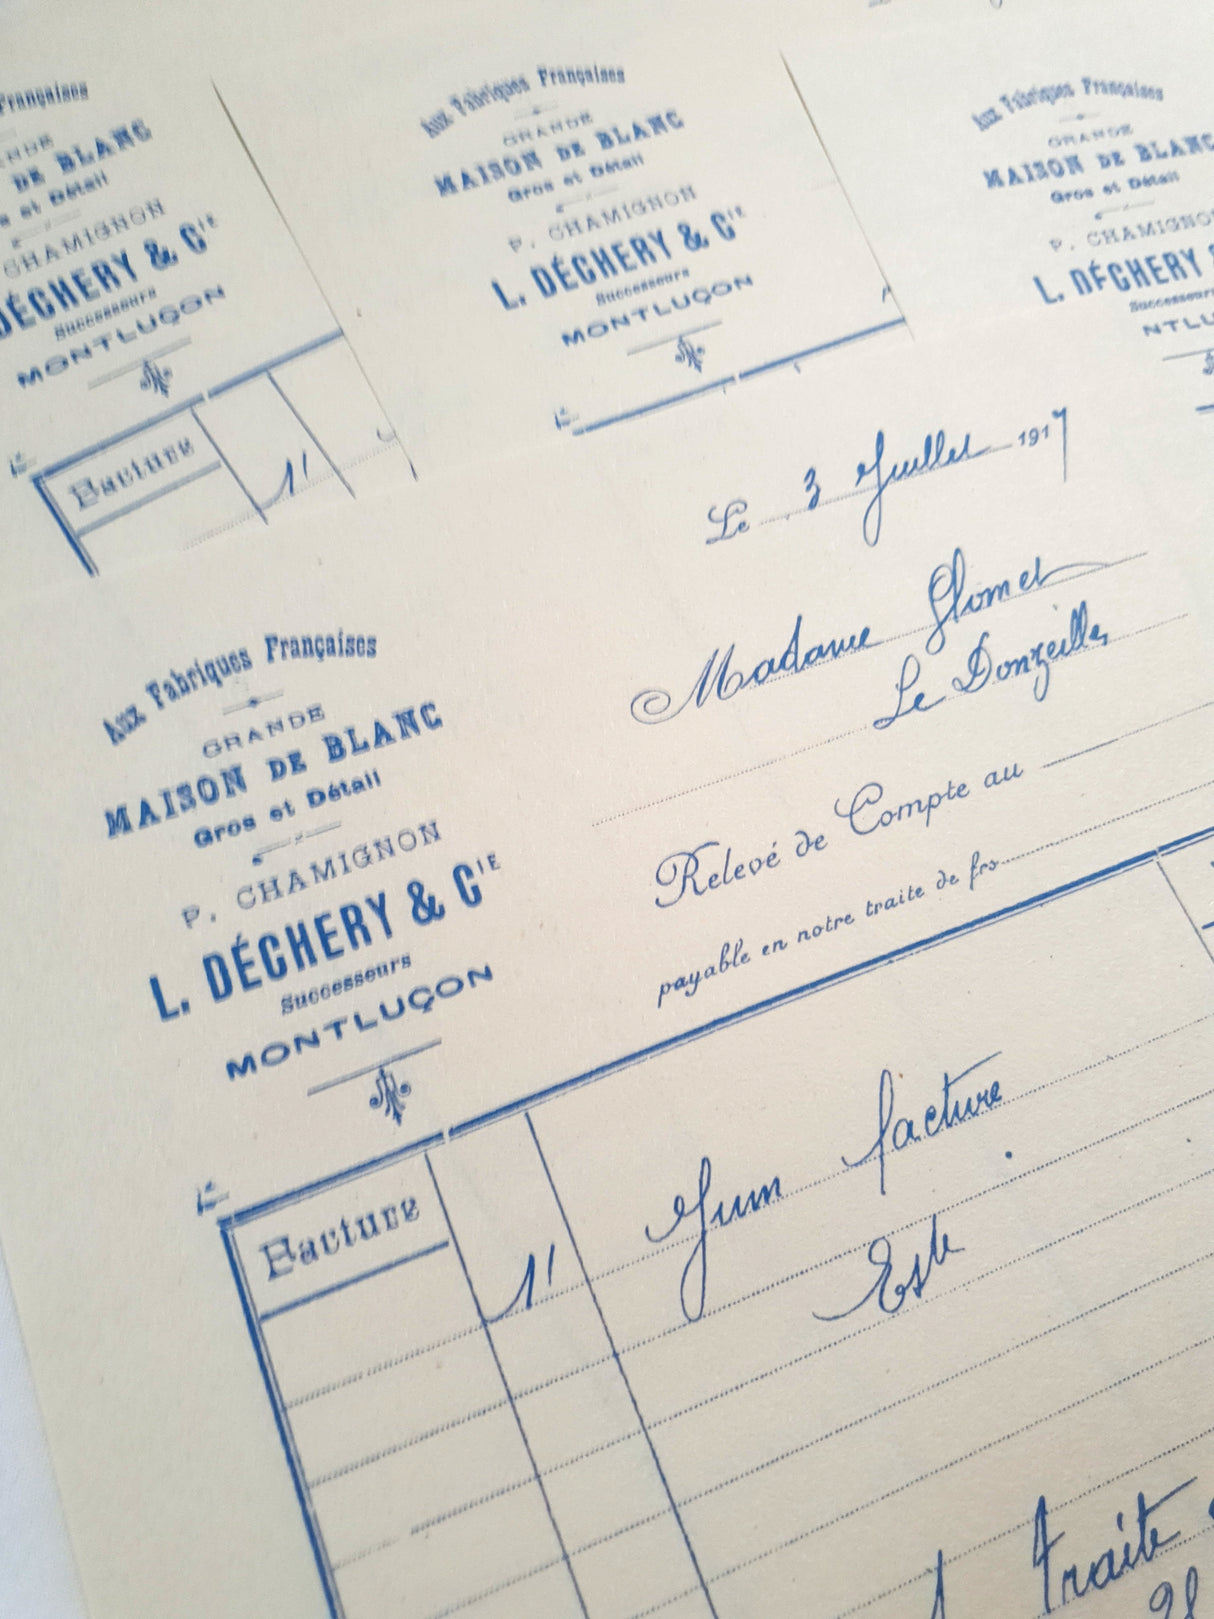 Françaises
DE BLANC
et Détail
CHAMIGNON
DÉCHERY & Cie
Successeurs
MONTLUÇON
Facture
1'
Aux Fabriques Françaises
GRANDE
MAISON DE BLANC
Gros et Détail
P. CHAMIGNON
L. DÉCHERY & Cie
Successeurs
MONTLUÇON
Aux Fabriques Françaises
GRANDE
MAISON DE BLANC
Gros et Détail
P. CHAMIGNON
L. DÉCHERY
Successeurs
Le 3 Juillet 1917
Madame
Le Donzeilles
Relevé de Compte au
payable en notre traite de frs
Aux Fabriques Françaises
GRANDE
MAISON DE BLANC
Gros et Détail
P. CHAMIGNON
L. DÉCHERY & Cie
Successeurs
MONTLUÇON
Facture
1' Juin facture
traite